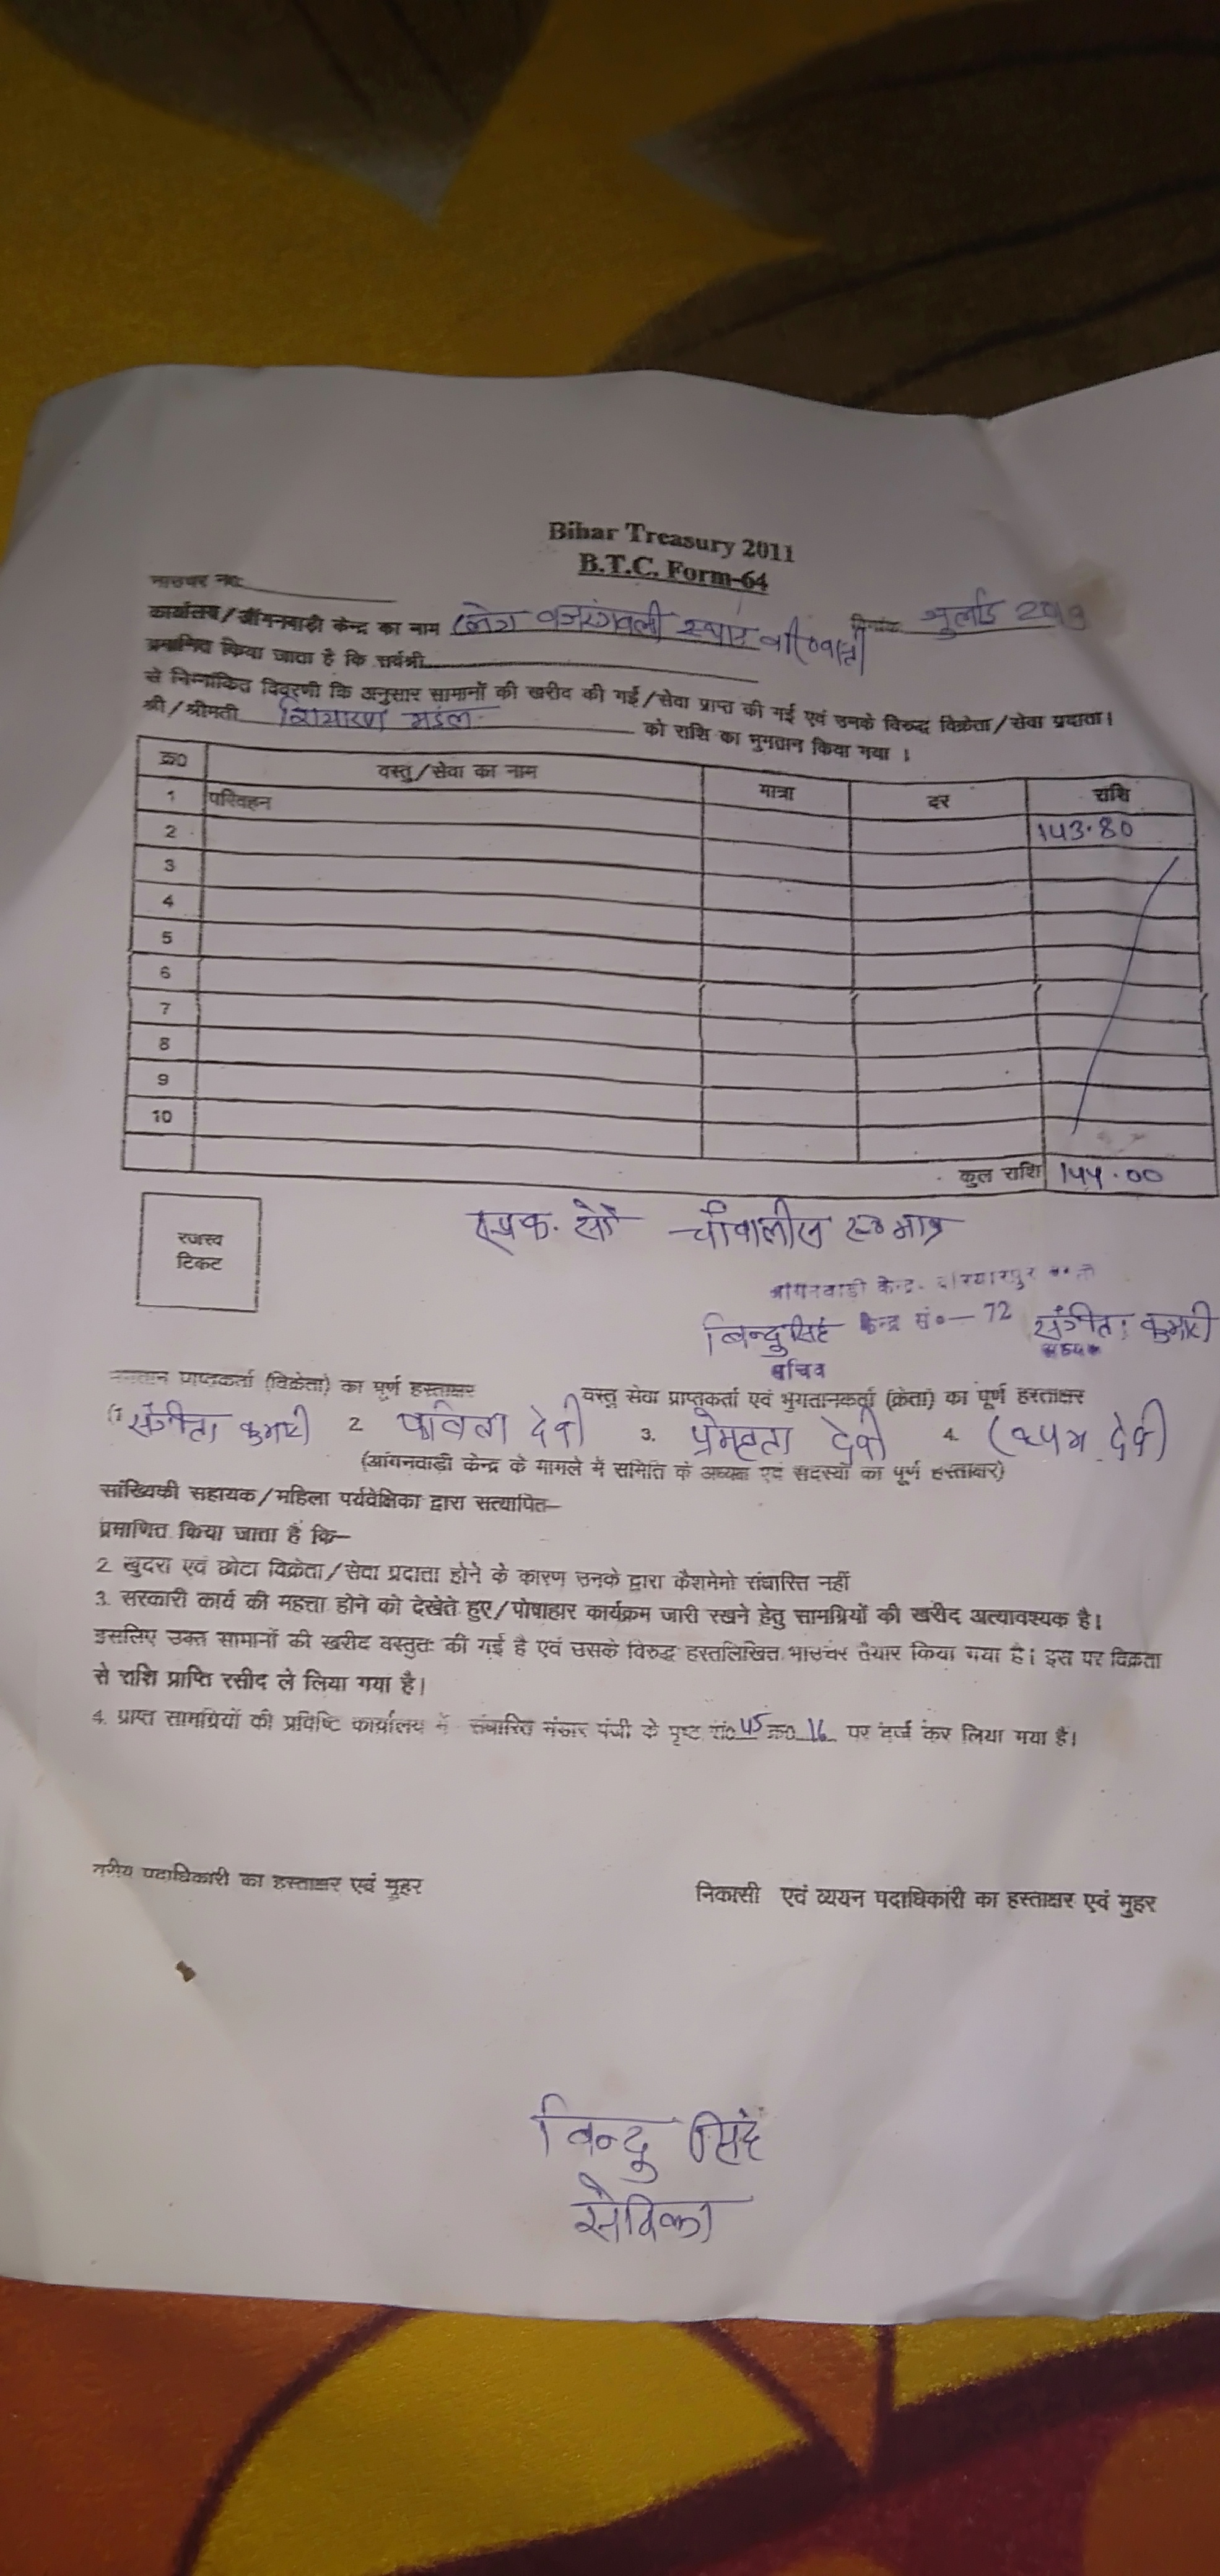 Bihar Treasury 2011
B.T.C. Form-64
भाउचर नं०
कार्यालय/आँगनवाड़ी केन्द्र का नाम वजरंगवली स्थान दिनांक जुलाई 2019
प्रमाणित किया जाता है कि सर्वश्री
से निम्नांकित विवरणी कि अनुसार सामानों की खरीद की गई/सेवा प्राप्त की गई एवं उनके विरुद्ध विक्रेता/सेवा प्रदाता।
श्री/श्रीमती मंडल को राशि का भुगतान किया गया ।
क्र० वस्तु/सेवा का नाम मात्रा दर राशि
1 परिवहन 143.80
2
3
4
5
6
7
8
9
10
कुल राशि 144.00
रजस्व
टिकट
एक सौ चौवालीस रू० मात्र
आंगनवाड़ी केन्द्र-
बिन्दु सिंह केन्द्र सं०-72 संगीता कुमारी
सचिव
भुगतान प्राप्तकर्ता (विक्रेता) का पूर्ण हस्ताक्षर वस्तु सेवा प्राप्तकर्ता एवं भुगतानकर्ता (क्रेता) का पूर्ण हस्ताक्षर
(1 संगीता कुमारी 2 कविता देवी 3. प्रेमलता देवी 4. देवी
(आंगनवाड़ी केन्द्र के मामले में समिति के अध्यक्ष एवं सदस्यों का पूर्ण हस्ताक्षर)
सांख्यिकी सहायक/महिला पर्यवेक्षिका द्वारा सत्यापित–
प्रमाणित किया जाता है कि–
2. खुदरा एवं छोटा विक्रेता/सेवा प्रदाता होने के कारण उनके द्वारा कैशमेमो संधारित नहीं
3. सरकारी कार्य की महत्ता होने को देखेते हुए/पोषाहार कार्यक्रम जारी रखने हेतु सामग्रियों की खरीद अत्यावश्यक है।
इसलिए उक्त सामानों की खरीद वस्तुतः की गई है एवं उसके विरुद्ध हस्तलिखित भाउचर तैयार किया गया है। इस पर विक्रता
से राशि प्राप्ति रसीद ले लिया गया है।
4. प्राप्त सामग्रियों की प्रविष्टि कार्यालय में संधारित भंडार पंजी के पृष्ट सं० 45 क्र० 16 पर दर्ज कर लिया गया है।
वरीय पदाधिकारी का हस्ताक्षर एवं मुहर निकासी एवं व्ययन पदाधिकारी का हस्ताक्षर एवं मुहर
बिन्दु सिंह
सेविका